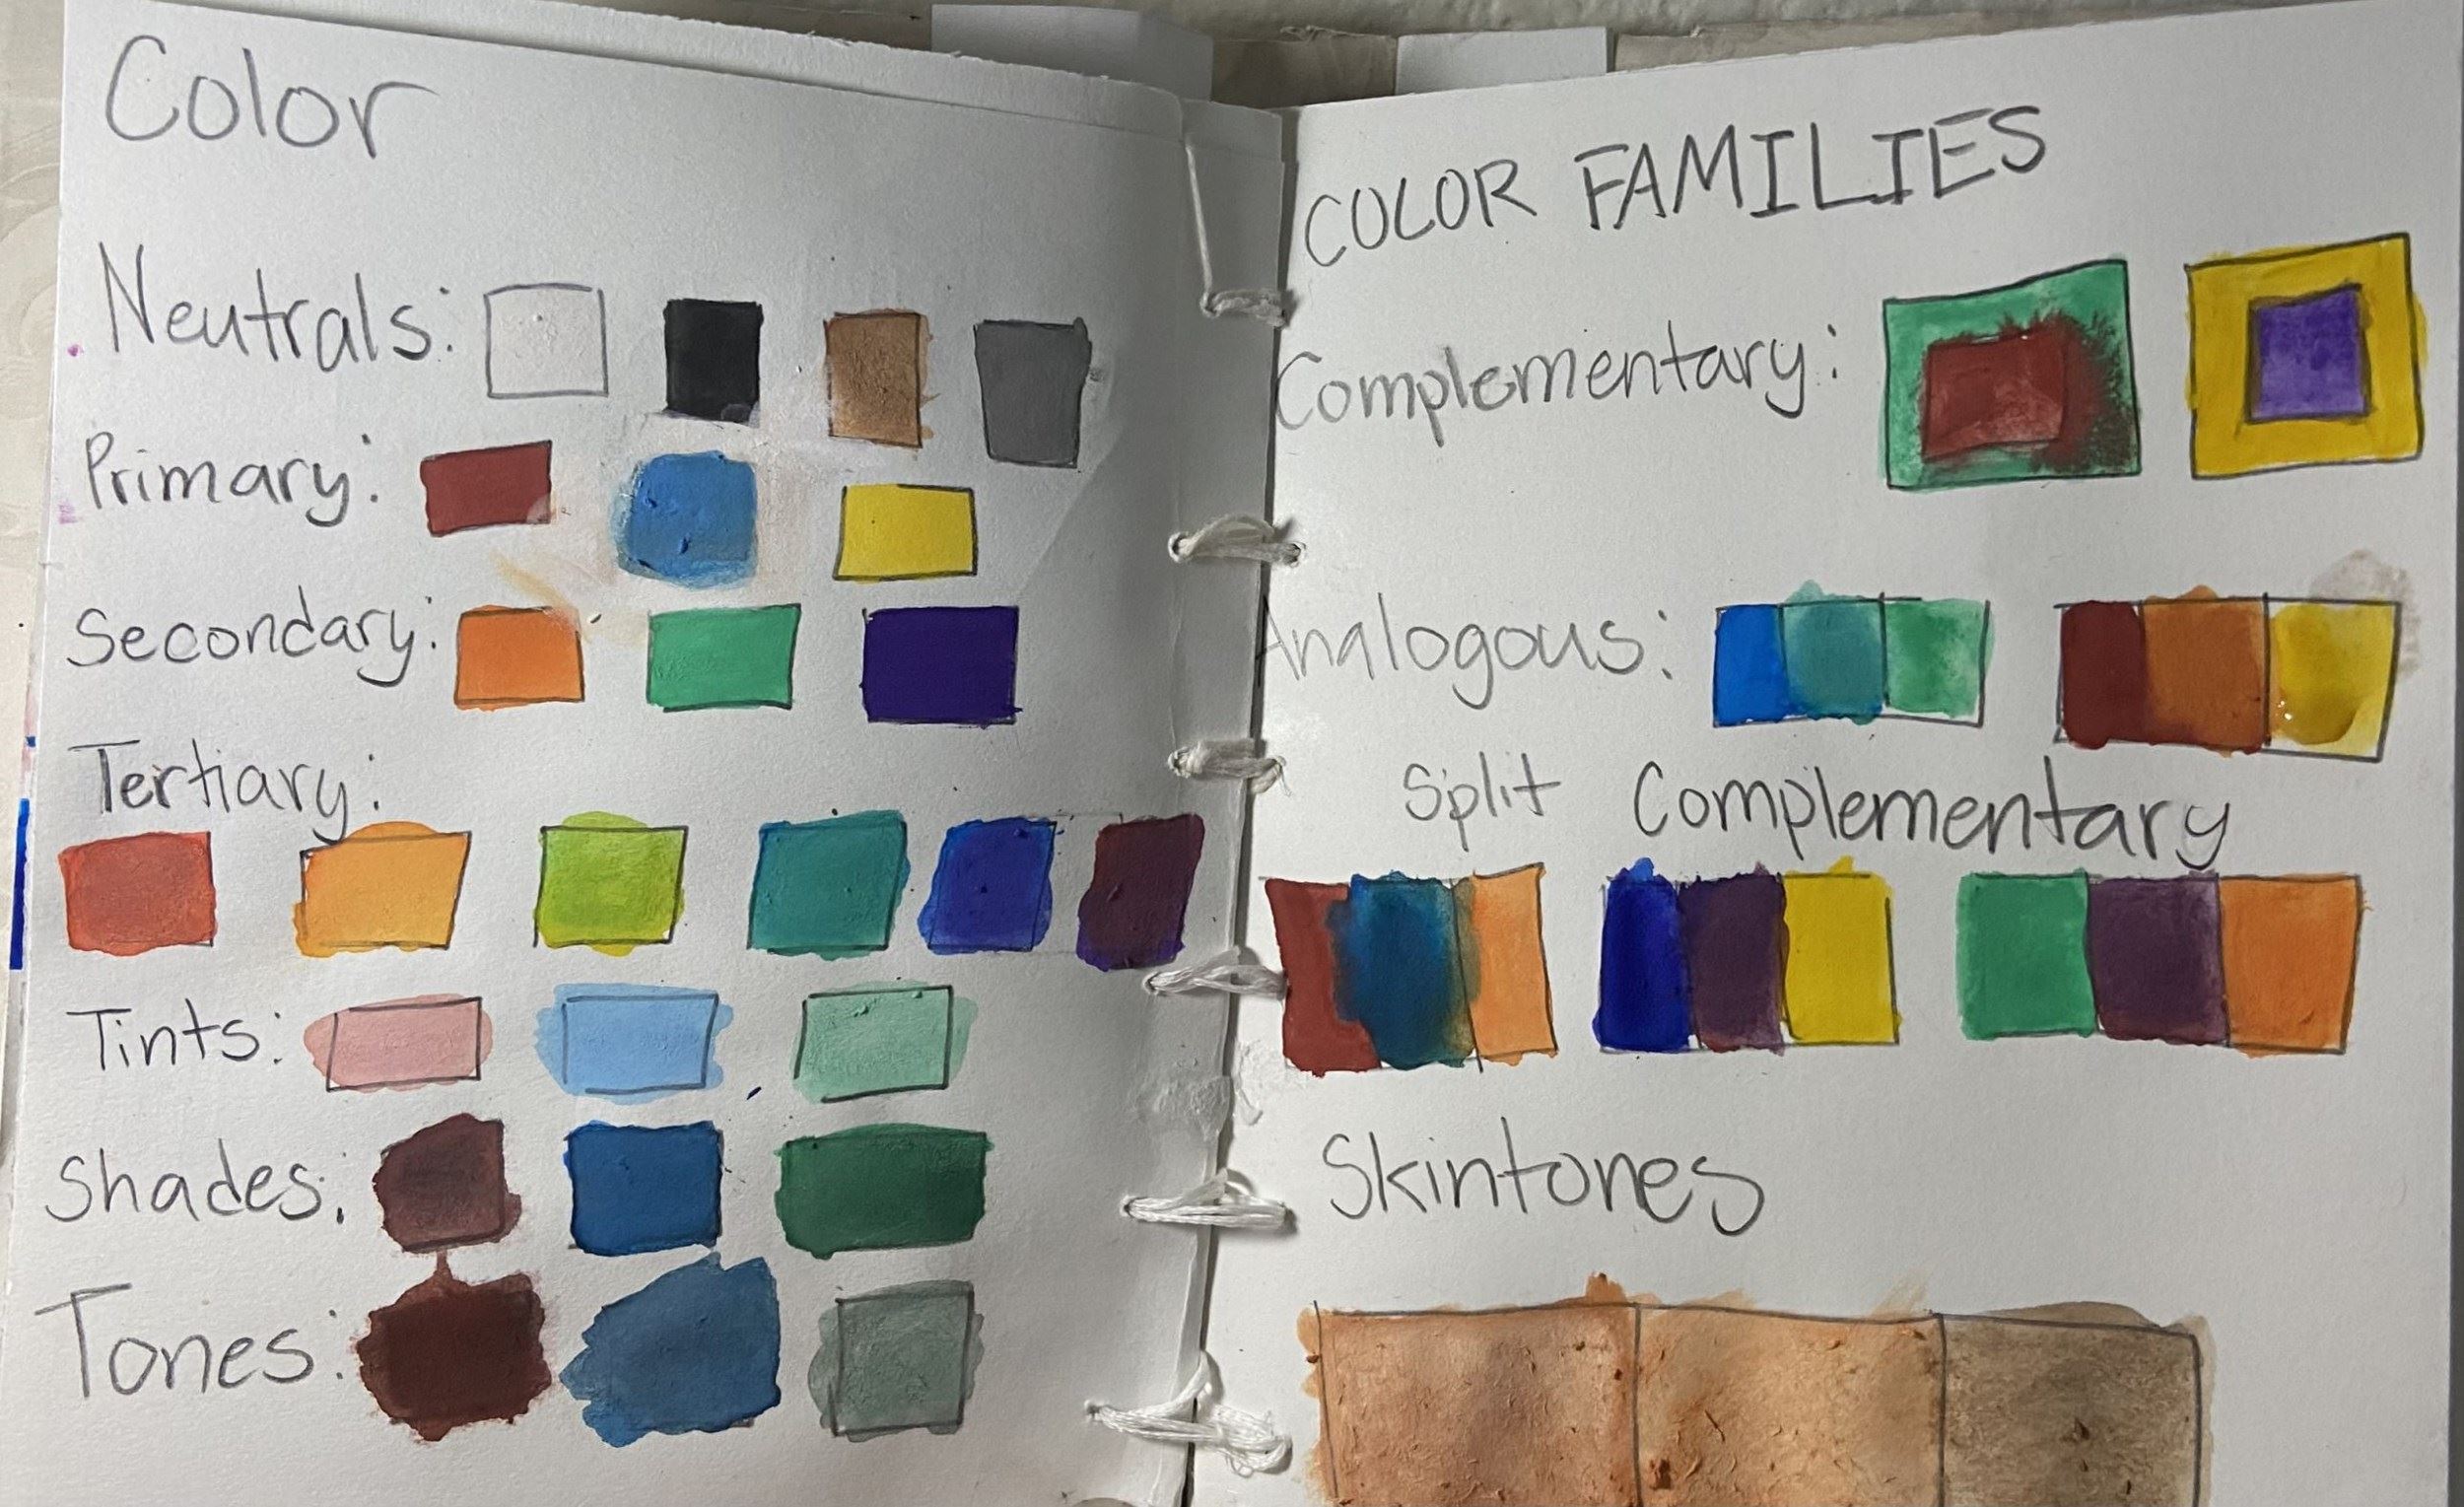 Color
Neutrals:
Primary:
Secondary:
Tertiary:
Tints:
Shades:
Tones:
COLOR FAMILIES
Complementary:
Analogous:
Split Complementary
Skintones